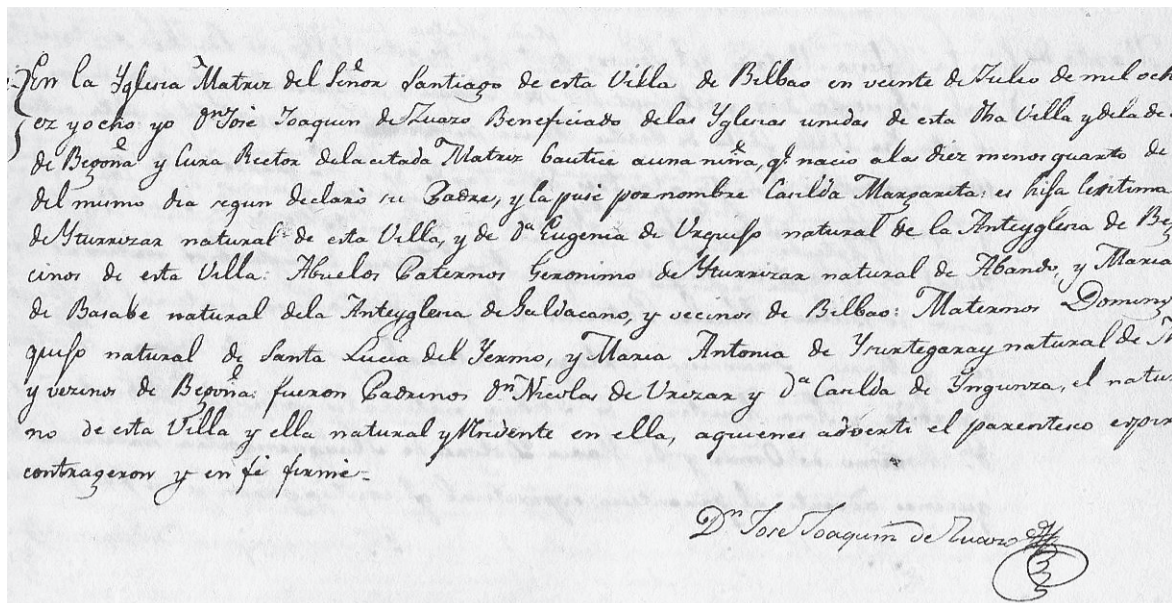 En la Yglesia Matriz del Señor Santiago de esta Villa de Bilbao en veinte de Julio de mil och
ez y ocho yo Dn José Joaquin de Zuazo Beneficiado de las Yglesias unidas de esta dha Villa y de la de
de Begoña y Cura Rector de la citada Matriz bautice a una niña, qe nacio a las diez menos quarto de
del mismo dia segun declaró su Padre, y la puse por nombre Casilda Margarita: es hija lexitima
de Yturrizar natural de esta Villa, y de Da Eugenia de Urquijo natural de la Anteyglesia de Be
cinos de esta Villa: Abuelos Paternos Geronimo de Yturrizar natural de Abando, y Maria
de Basabe natural de la Anteyglesia de Galdacano, y vecinos de Bilbao: Maternos Doming
quijo natural de Santa Lucia del Yermo, y Maria Antonia de Ysuntegaray natural de
y vecinos de Begoña: fueron Padrinos Dn Nicolas de Urizar y Da Casilda de Yngunza, el natu
no de esta Villa y ella natural y residente en ella, a quienes adverti el parentesco espir
contrageron y en fe firmé=
Dn José Joaquin de Zuazo